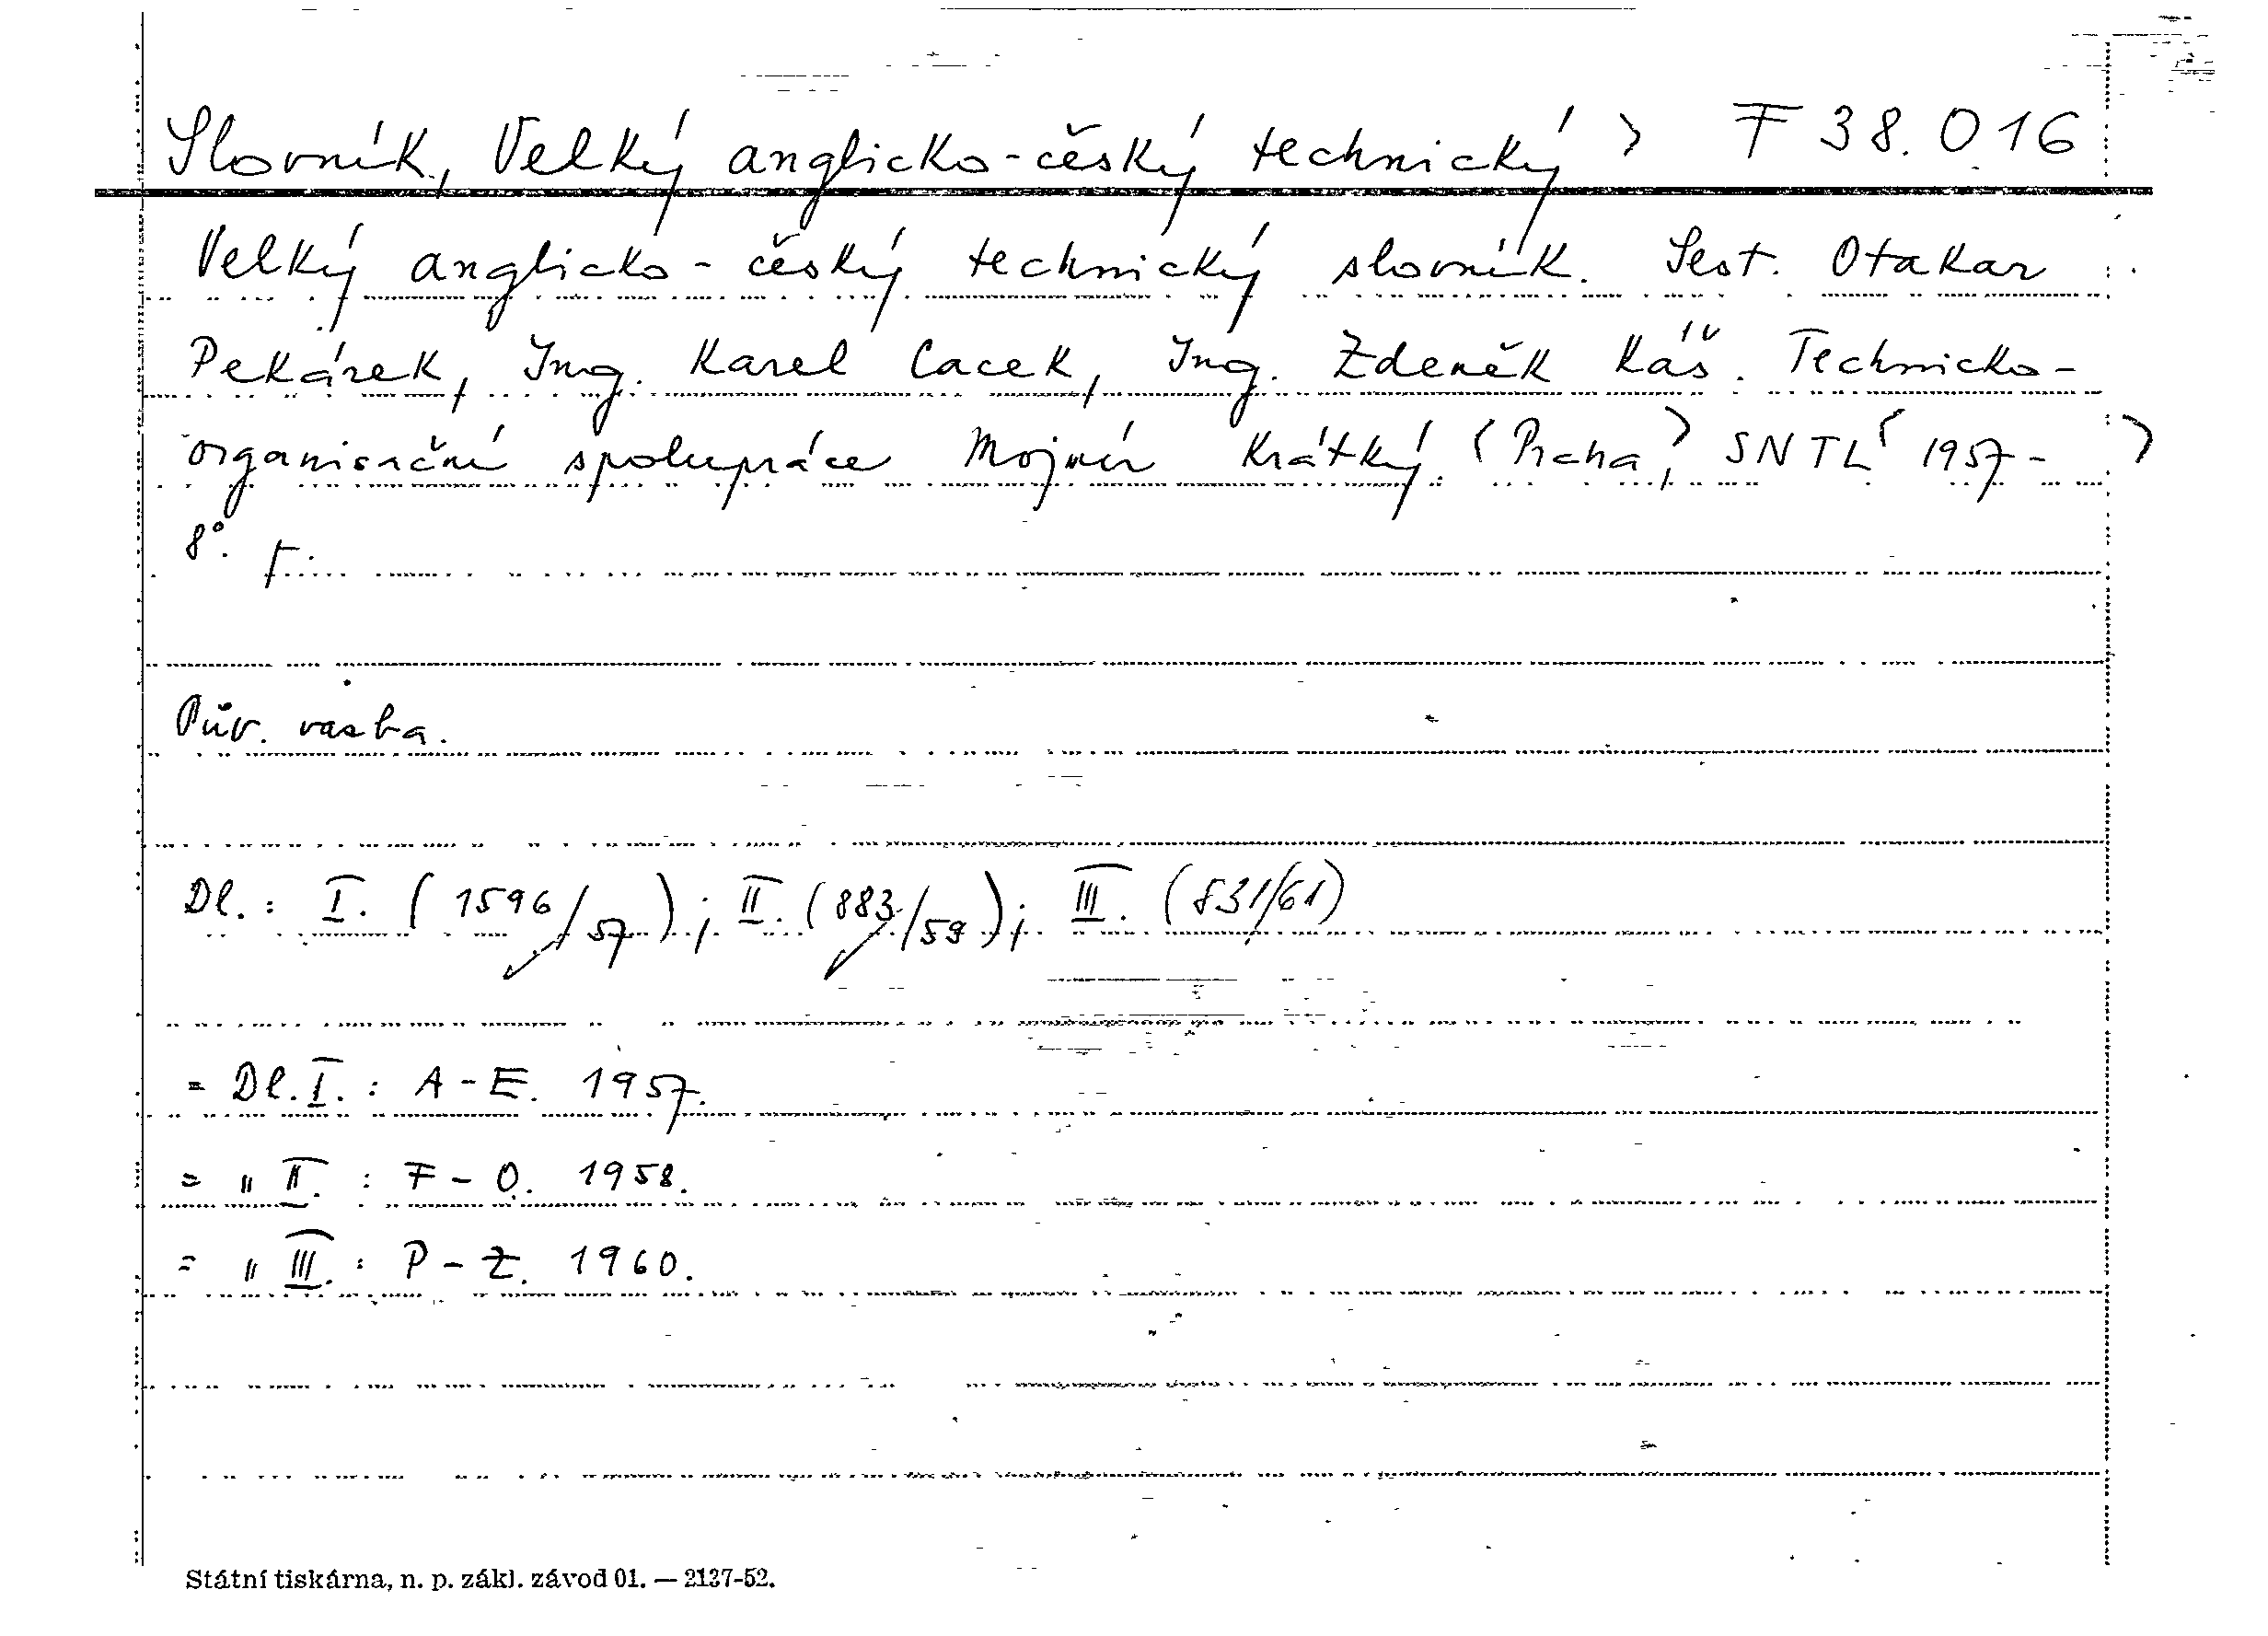 Slovník, Velký anglicko-český technický > F 38.016
Velký anglicko-český technický slovník. Sest. Otakar
Pekárek, Ing. Karel Cacek, Ing. Zdeněk Káš. Technicko-
organisační spolupráce Mojmír Krátký. (Praha), SNTL ( 1957- )
8°.
Pův. vazba.
Dl.: I. (1596/57); II. (883/59); III. (831/61)
= Dl. I. : A-E. 1957.
= " II. : F-O. 1958.
= " III. : P-Z. 1960.
Státní tiskárna, n. p. zákl. závod 01. — 2137-52.